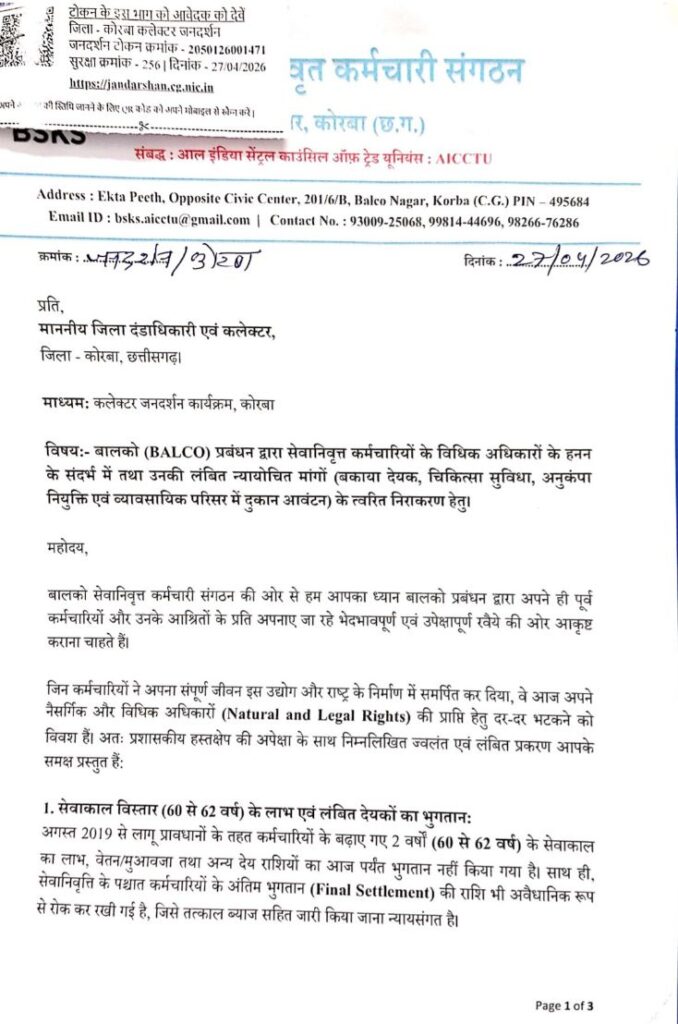 टोकन के इस भाग को आवेदक को देवें
जिला - कोरबा कलेक्टर जनदर्शन
जनदर्शन टोकन क्रमांक - 2050126001471
सुरक्षा क्रमांक - 256 | दिनांक - 27/04/2026
https://jandarshan.cg.nic.in
अपने की स्थिति जानने के लिए QR कोड को अपने मोबाइल से स्कैन करें।
वृत कर्मचारी संगठन
BSKS
र, कोरबा (छ.ग.)
संबद्ध : आल इंडिया सेंट्रल काउंसिल ऑफ़ ट्रेड यूनियंस : AICCTU
Address : Ekta Peeth, Opposite Civic Center, 201/6/B, Balco Nagar, Korba (C.G.) PIN – 495684
Email ID : bsks.aicctu@gmail.com | Contact No. : 93009-25068, 99814-44696, 98266-76286
क्रमांक : दिनांक : 27/04/2026
प्रति,
माननीय जिला दंडाधिकारी एवं कलेक्टर,
जिला - कोरबा, छत्तीसगढ़।
माध्यम: कलेक्टर जनदर्शन कार्यक्रम, कोरबा
विषय:- बालको (BALCO) प्रबंधन द्वारा सेवानिवृत्त कर्मचारियों के विधिक अधिकारों के हनन
के संदर्भ में तथा उनकी लंबित न्यायोचित मांगों (बकाया देयक, चिकित्सा सुविधा, अनुकंपा
नियुक्ति एवं व्यावसायिक परिसर में दुकान आवंटन) के त्वरित निराकरण हेतु।
महोदय,
बालको सेवानिवृत्त कर्मचारी संगठन की ओर से हम आपका ध्यान बालको प्रबंधन द्वारा अपने ही पूर्व
कर्मचारियों और उनके आश्रितों के प्रति अपनाए जा रहे भेदभावपूर्ण एवं उपेक्षापूर्ण रवैये की ओर आकृष्ट
कराना चाहते हैं।
जिन कर्मचारियों ने अपना संपूर्ण जीवन इस उद्योग और राष्ट्र के निर्माण में समर्पित कर दिया, वे आज अपने
नैसर्गिक और विधिक अधिकारों (Natural and Legal Rights) की प्राप्ति हेतु दर-दर भटकने को
विवश हैं। अतः प्रशासकीय हस्तक्षेप की अपेक्षा के साथ निम्नलिखित ज्वलंत एवं लंबित प्रकरण आपके
समक्ष प्रस्तुत हैं:
1. सेवाकाल विस्तार (60 से 62 वर्ष) के लाभ एवं लंबित देयकों का भुगतान:
अगस्त 2019 से लागू प्रावधानों के तहत कर्मचारियों के बढ़ाए गए 2 वर्षों (60 से 62 वर्ष) के सेवाकाल
का लाभ, वेतन/मुआवजा तथा अन्य देय राशियों का आज पर्यंत भुगतान नहीं किया गया है। साथ ही,
सेवानिवृत्ति के पश्चात कर्मचारियों के अंतिम भुगतान (Final Settlement) की राशि भी अवैधानिक रूप
से रोक कर रखी गई है, जिसे तत्काल ब्याज सहित जारी किया जाना न्यायसंगत है।
Page 1 of 3